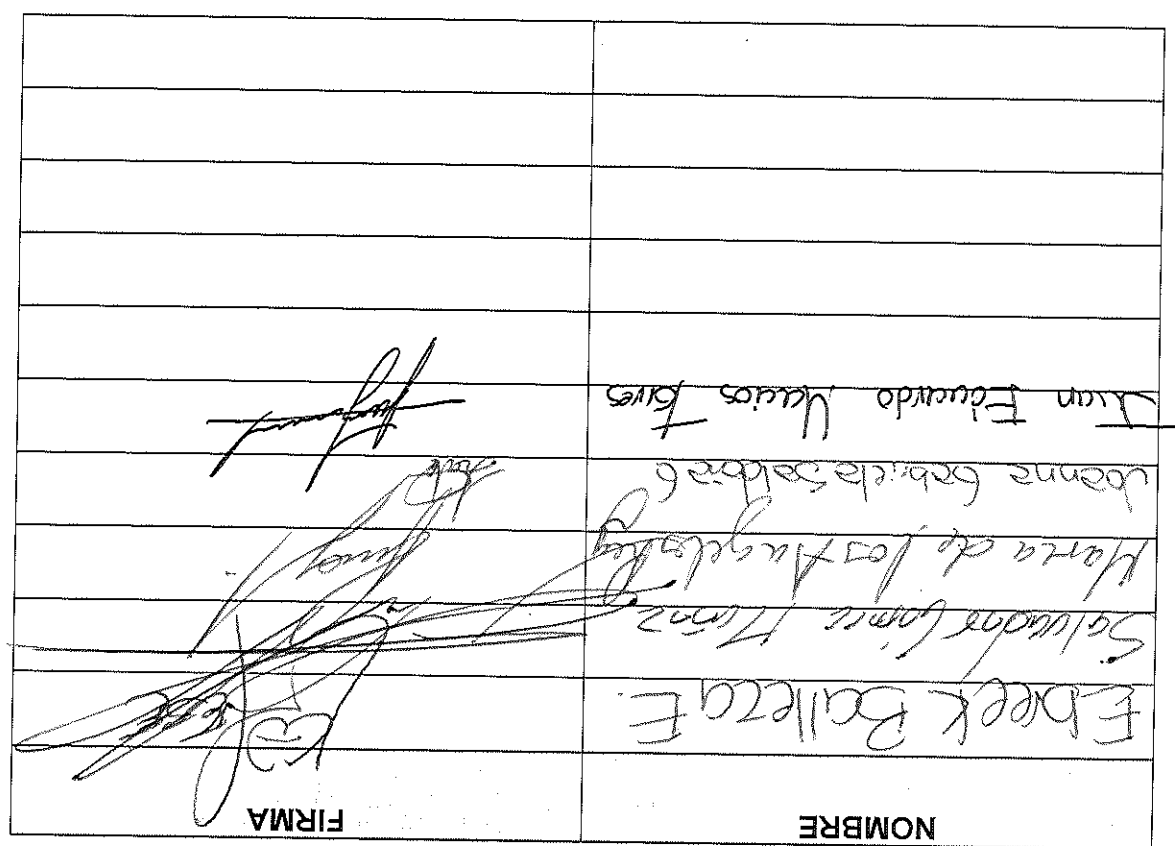 NOMBRE FIRMA
Ebleek Balleza E.
Salvador Gómez
Maria de los Angeles Rey
Joanna Gabriela Saldaña G
Juan Eduardo Macias Torres